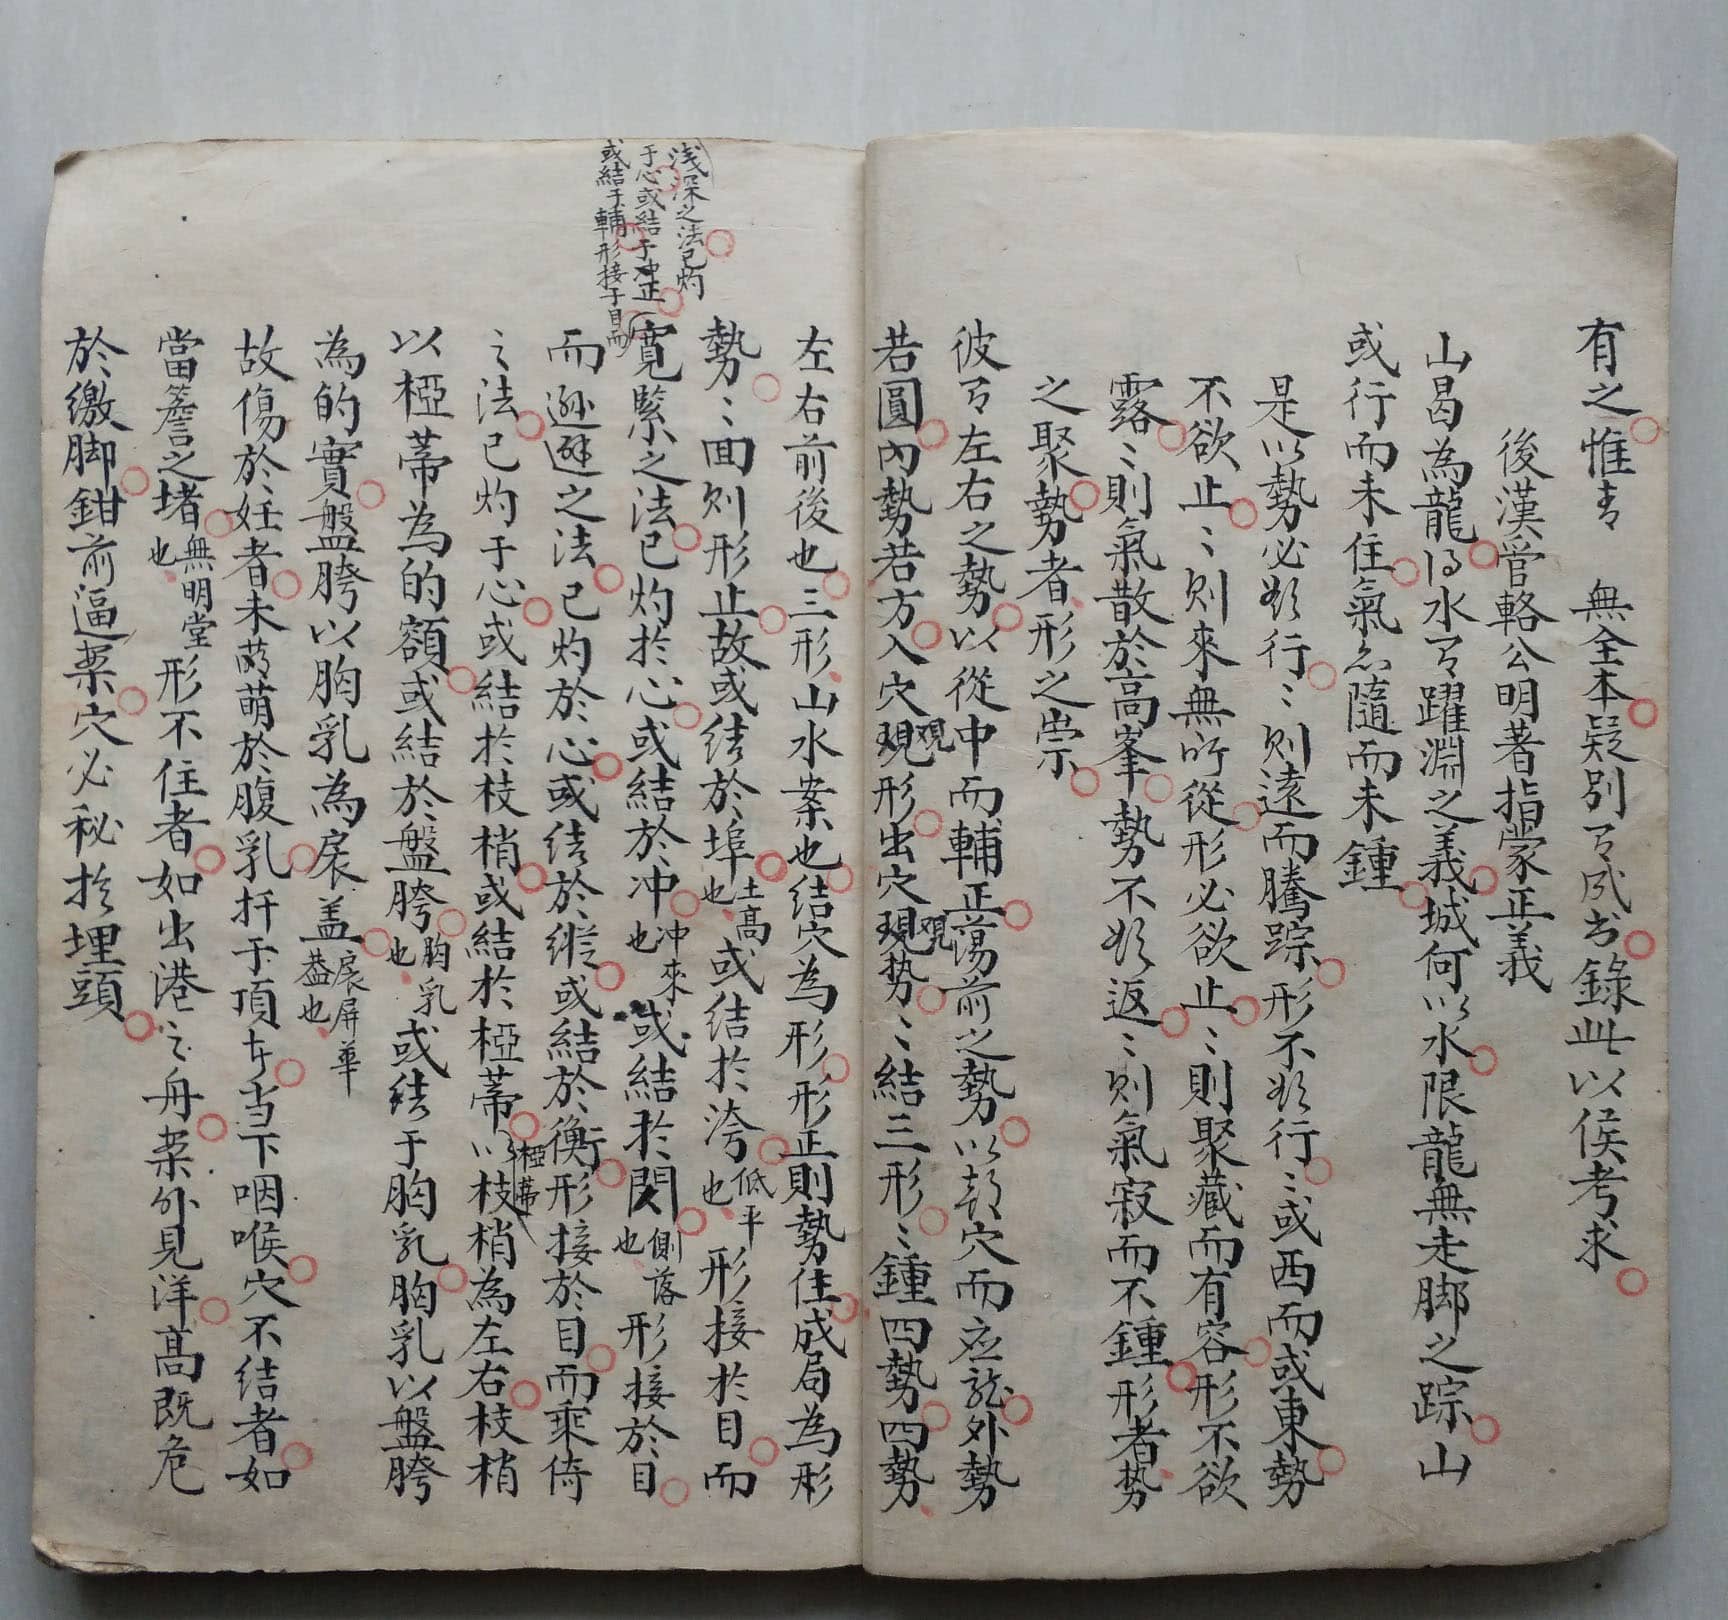 有之惟 無全本疑別 成 錄此以侯考求
後漢管輅公明著指蒙正義
山曷為龍 水 躍淵之義城何以水限龍無走脚之踪山
或行而未住氣 隨而未鍾
是以勢必 行〻則遠而騰踪形不 行〻或西而或東勢
不欲止〻則來無所從形必欲止〻則聚藏而有容形不欲
露〻則氣散於高峯勢不 返〻則氣寂而不鍾形者势
之聚勢者形之崇
彼 左右之勢以從中而輔正蕩前之勢以 穴而应龍外勢
若圓內勢若方入穴觀現形出穴觀現势〻結三形〻鍾四勢四勢
左右前後也三形山水案也结穴為形形正則勢住成局為形
勢〻面则形止故或结於埠土高也或结於洿低平也形接於目而
淺深之法已灼
于心或結于冲正
或結于輔形接于目而
寬緊之法已灼於心或結於冲冲來也或結於閃側落也形接於目
而遜避之法已灼於心或结於縱或結於衡形接於目而乘倚
之法已灼于心或結於枝梢或結於椏蒂椏蒂以枝梢為左右枝梢
以椏蒂為的額或結於盤胯胸乳也或结于胸乳胸乳以盤胯
為的實盤胯以胸乳為扆盖扆屏華葢也
故傷於妊者未 萌於腹乳扦于頂 当下咽喉穴不结者如
當簷之堵無明堂也形不住者如出港之舟案外見洋高既危
於繳脚鉗前逼案穴必秘於埋頭